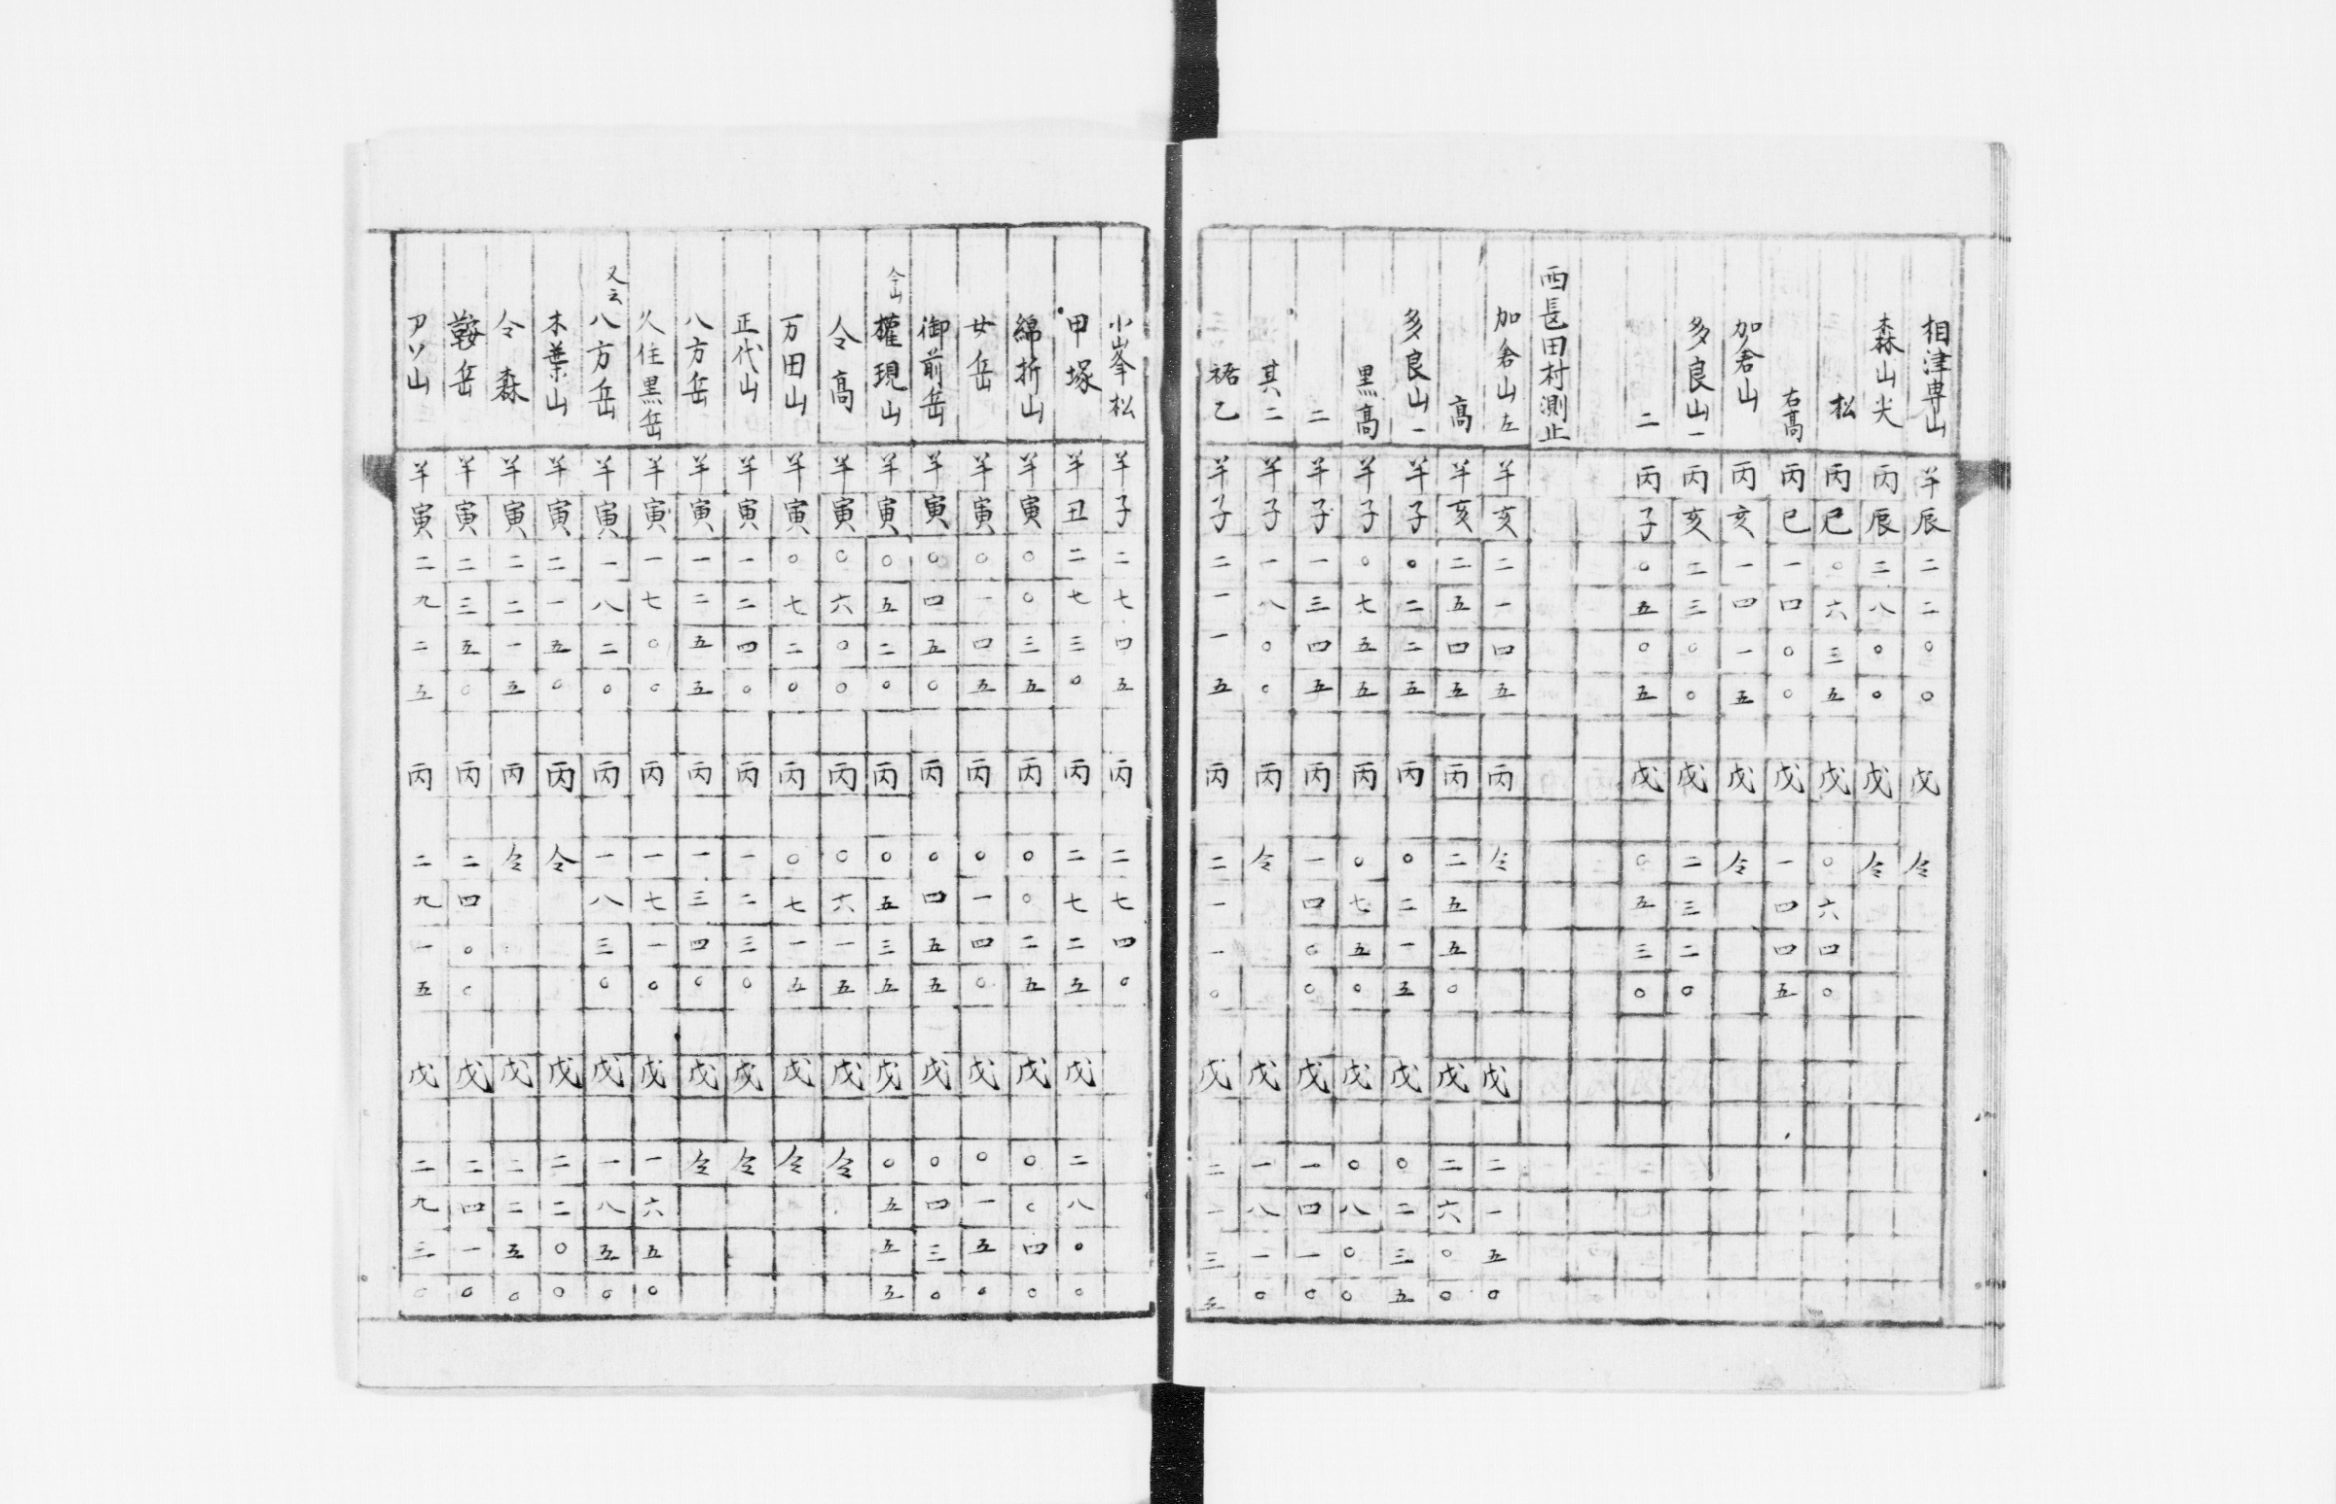 相津専山 羊辰二二〇〇 戊仝
森山尖 丙辰二八〇〇 戊仝
松 丙巳〇六三五 戊〇六四〇
右髙 丙巳一四〇〇 戊一四四五
加倉山 丙亥一四一五 戊仝
多良山一 丙亥二三〇〇 戊二三二〇
二 丙子〇五〇五 戊〇五三〇
西長田村測止
加倉山左 羊亥二一四五 丙仝 戊二一五〇
髙 羊亥二五四五 丙二五五〇 戊二六〇〇
多良山一 羊子〇二二五 丙〇二一五 戊〇二三五
黒髙 羊子〇七五五 丙〇七五〇 戊〇八〇〇
二 羊子一三四五 丙一四〇〇 戊一四一〇
其二 羊子一八〇〇 丙仝 戊一八一〇
裾乙 羊子二一一五 丙二一一〇 戊二一三五
小峯松 羊子二七四五 丙二七四〇
甲塚 羊丑二七三〇 丙二七二五 戊二八〇〇
綿折山 羊寅〇〇三五 丙〇〇二五 戊〇〇四〇
女岳 羊寅〇一四五 丙〇一四〇 戊〇一五〇
御前岳 羊寅〇四五〇 丙〇四五五 戊〇四三〇
仝山 権現山 羊寅〇五二〇 丙〇五三五 戊〇五五五
仝髙 羊寅〇六〇〇 丙〇六一五 戊仝
万田山 羊寅〇七二〇 丙〇七一五 戊仝
正代山 羊寅一二四〇 丙一二三〇 戊仝
八方岳 羊寅一二五五 丙一三四〇 戊仝
久住黒岳 羊寅一七〇〇 丙一七一〇 戊一六五〇
又云 八方岳 羊寅一八二〇 丙一八三〇 戊一八五〇
木葉山 羊寅二一五〇 丙仝 戊二二〇〇
仝森 羊寅二二一五 丙仝 戊二二五〇
鞍岳 羊寅二三五〇 丙二四〇〇 戊二四一〇
山 羊寅二九二五 丙二九一五 戊二九三〇